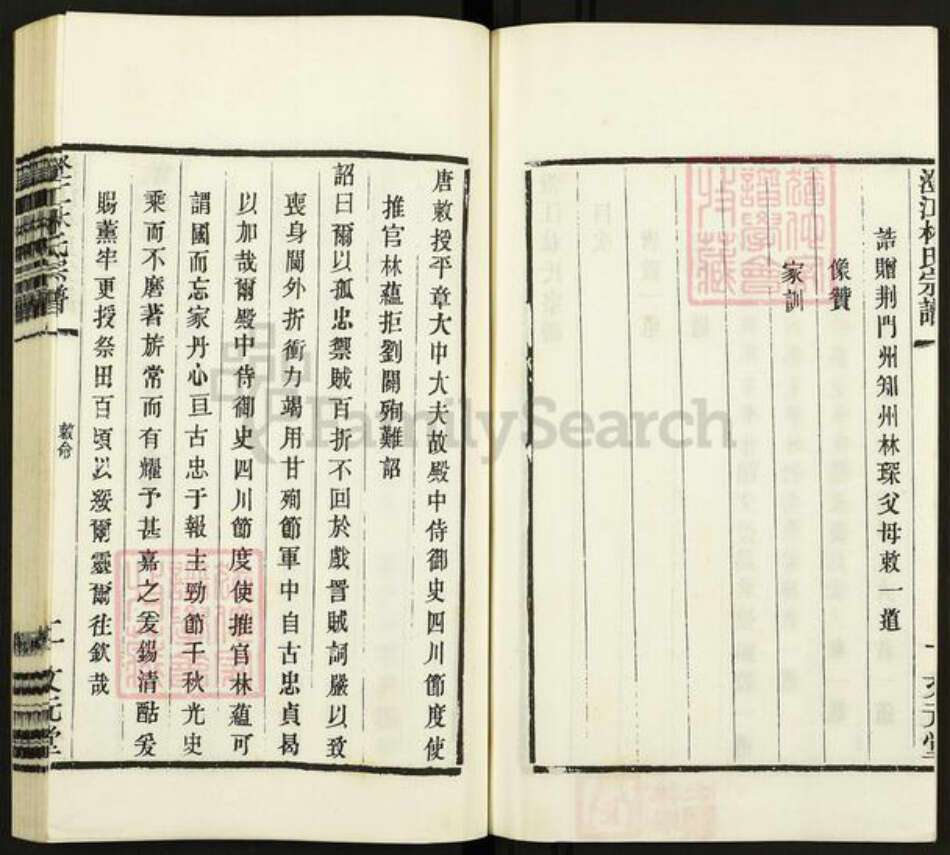 澄江林氏宗譜
誥贈荆門州知州林琛父母敕一道
像贊
家訓
一 文元堂
唐敕授平章大中大夫故殿中侍御史四川節度使
推官林蘊拒劉闢殉難詔
詔曰爾以孤忠禦賊百折不回於戲詈賊詞嚴以致
喪身閫外折衝力竭用甘殉節軍中自古忠貞曷
以加哉爾殿中侍御史四川節度使推官林蘊可
謂國而忘家丹心亘古忠于報主勁節千秋光史
乘而不磨著旂常而有耀予甚嘉之爰錫清酤爰
賜薰牢更授祭田百頃以綏爾靈爾往欽哉
林氏宗譜
敕命
二 文元堂
FamilySearch